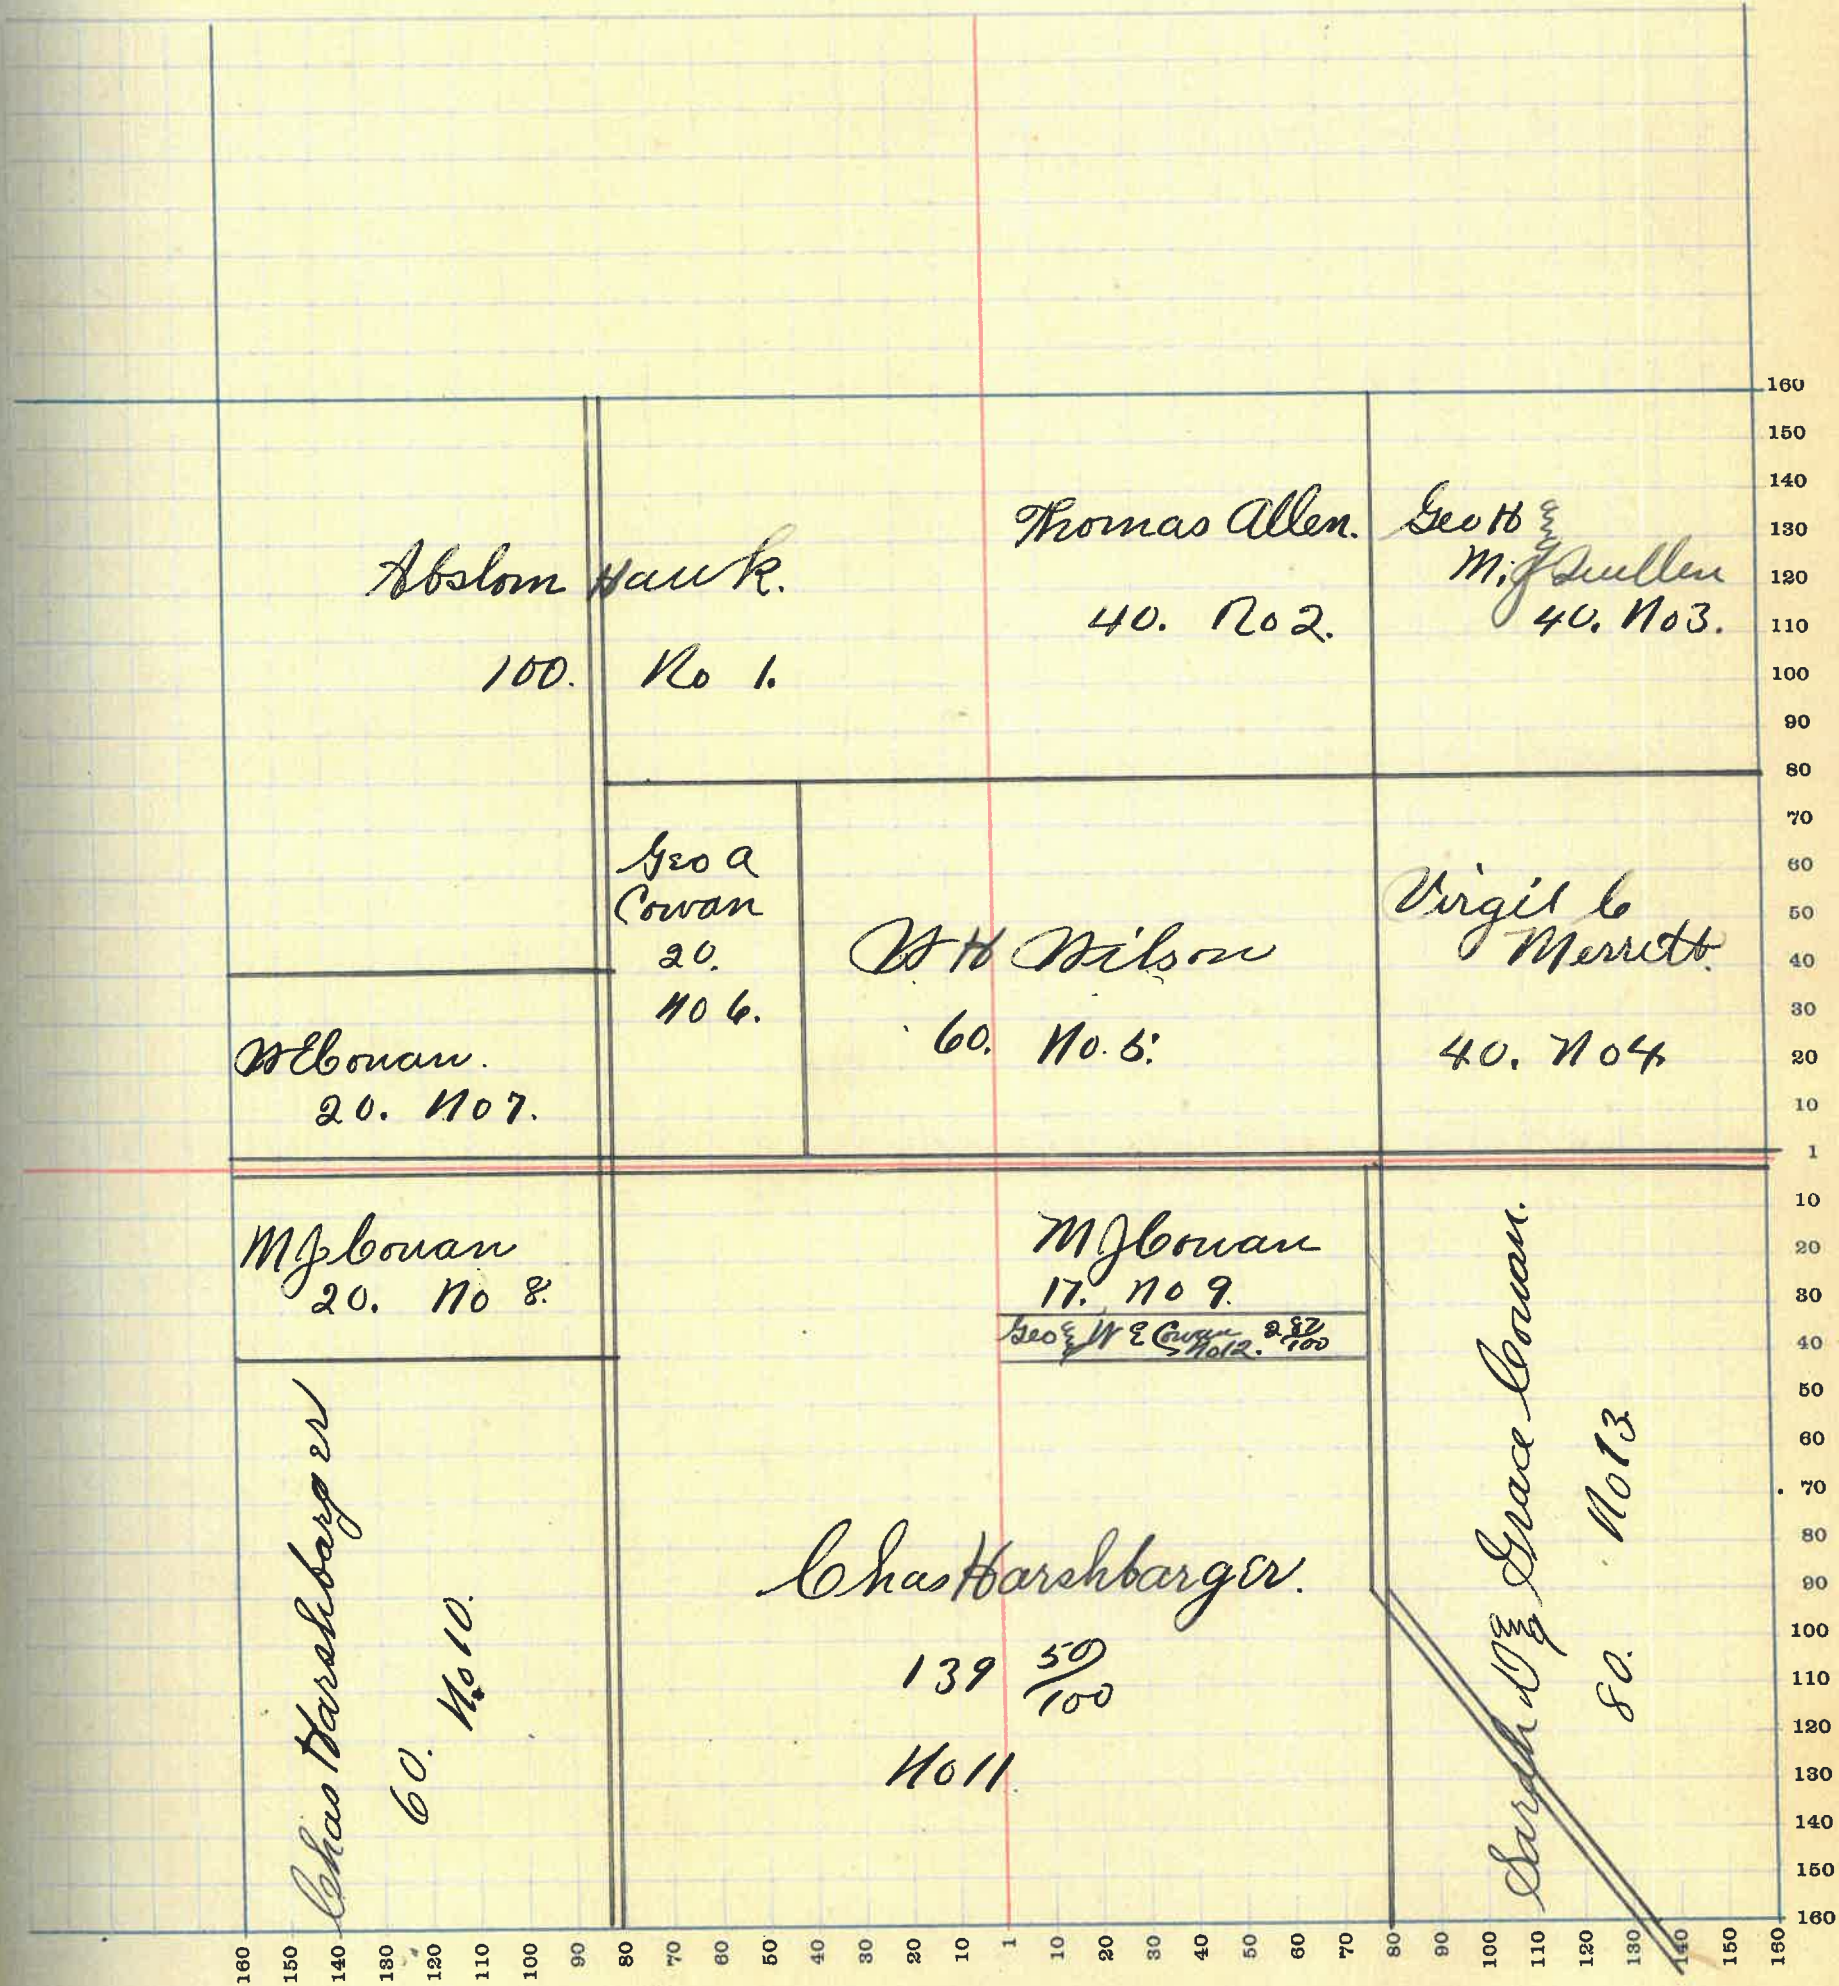 Abslom Hauk.
100. No 1.
Thomas Allen.
40. No 2.
Geo H &
M. J Quillen
40. No 3.
Geo A
Cowan
20.
No 6.
W H Wilson
60. No. 5.
Virgil C
Merrett.
40. No 4
W E Cowan.
20. No 7.
M J Cowan
20. No 8.
M J Cowan
17. No 9.
Geo & W E Cowan
No 12. 2 87/100
Chas Harshbarger
60. No 10.
Chas Harshbarger.
139 50/100
No 11
Sarah D & Grace Cowan.
80. No 13
160
150
140
130
120
110
100
90
80
70
60
50
40
30
20
10
1
10
20
30
40
50
60
70
80
90
100
110
120
130
140
150
160
160 150 140 130 120 110 100 90 80 70 60 50 40 30 20 10 1 10 20 30 40 50 60 70 80 90 100 110 120 130 140 150 160